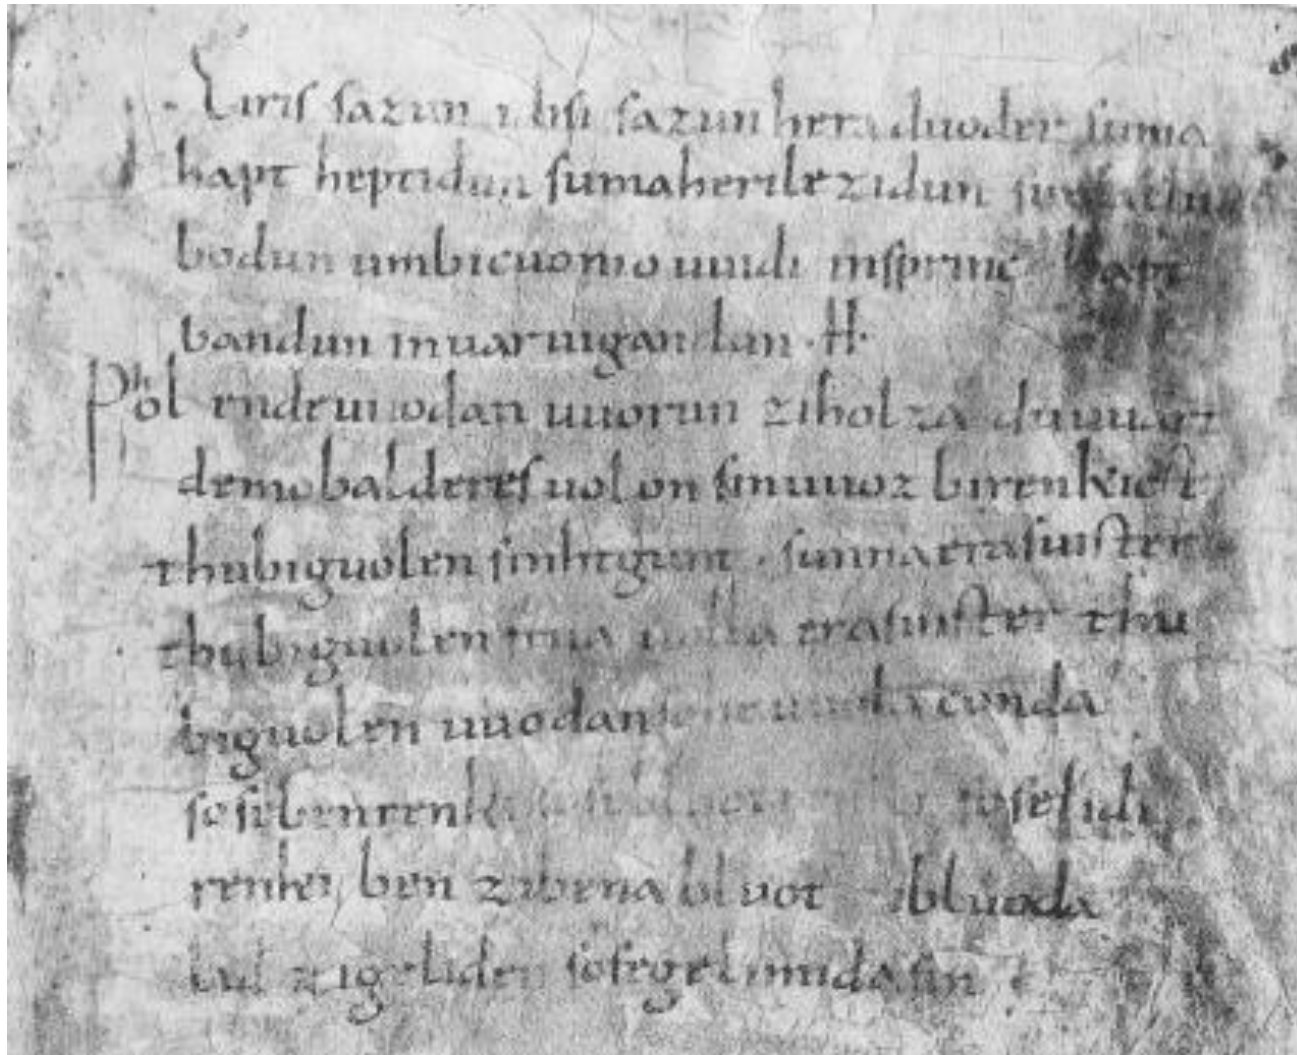 Eiris sazun idisi sazun hera duoder suma
hapt heptidun sumaherilezidun sumaclubo
bodun umbicuonio uuidi insprinc hapt
bandun inuaruigandun ·H·
Phol endeuuodan uuorun ziholza du uuart
demobalderesuolon sinuuoz birenkict
thubiguolen sinhtgunt · sunnaerasuister
thubiguolen friia uolla erasuister thu
biguolen uuodan sohe uuolaconda
sosebenrenki sosebluotrenki soselidi
renki ben zibena bluot zibluoda
lid zigeliden sosegelimidasin